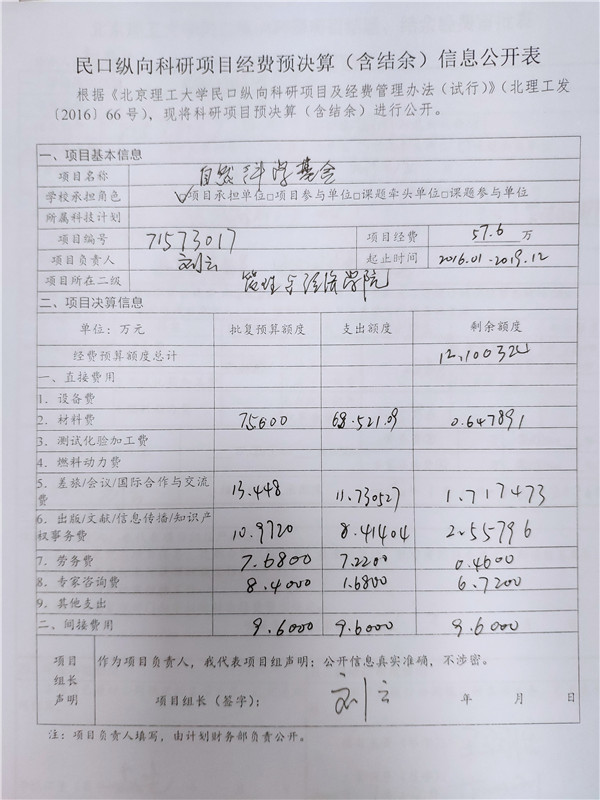 民口纵向科研项目经费预决算（含结余）信息公开表
根据《北京理工大学民口纵向科研项目及经费管理办法（试行）》（北理工发
〔2016〕66号）、现将科研项目预决算（含结余）进行公开。
一、项目基本信息
项目名称 自然科学基金
学校承担角色 ☑项目承担单位□项目参与单位□课题牵头单位□课题参与单位
所属科技计划
项目编号 71573017 项目经费 57.6 万
项目负责人 刘云 起止时间 2016.01-2019.12
项目所在二级 管理与经济学院
二、项目决算信息
单位：万元 批复预算额度 支出额度 剩余额度
经费预算额度总计 12.100324
一、直接费用
1. 设备费
2. 材料费 75000 68.521.09 0.647891
3. 测试化验加工费
4. 燃料动力费
5. 差旅/会议/国际合作与交流费 13.448 11.730527 1.717473
6. 出版/文献/信息传播/知识产权事务费 10.9720 8.41404 2.55796
7. 劳务费 7.6800 7.2200 0.4600
8. 专家咨询费 8.4000 1.6800 6.7200
9. 其他支出
二、间接费用 9.6000 9.6000 9.6000
项目组长声明
作为项目负责人，我代表项目组声明：公开信息真实准确，不涉密。
项目组长（签字）： 刘云 年 月 日
注：项目负责人填写，由计划财务部负责公开。